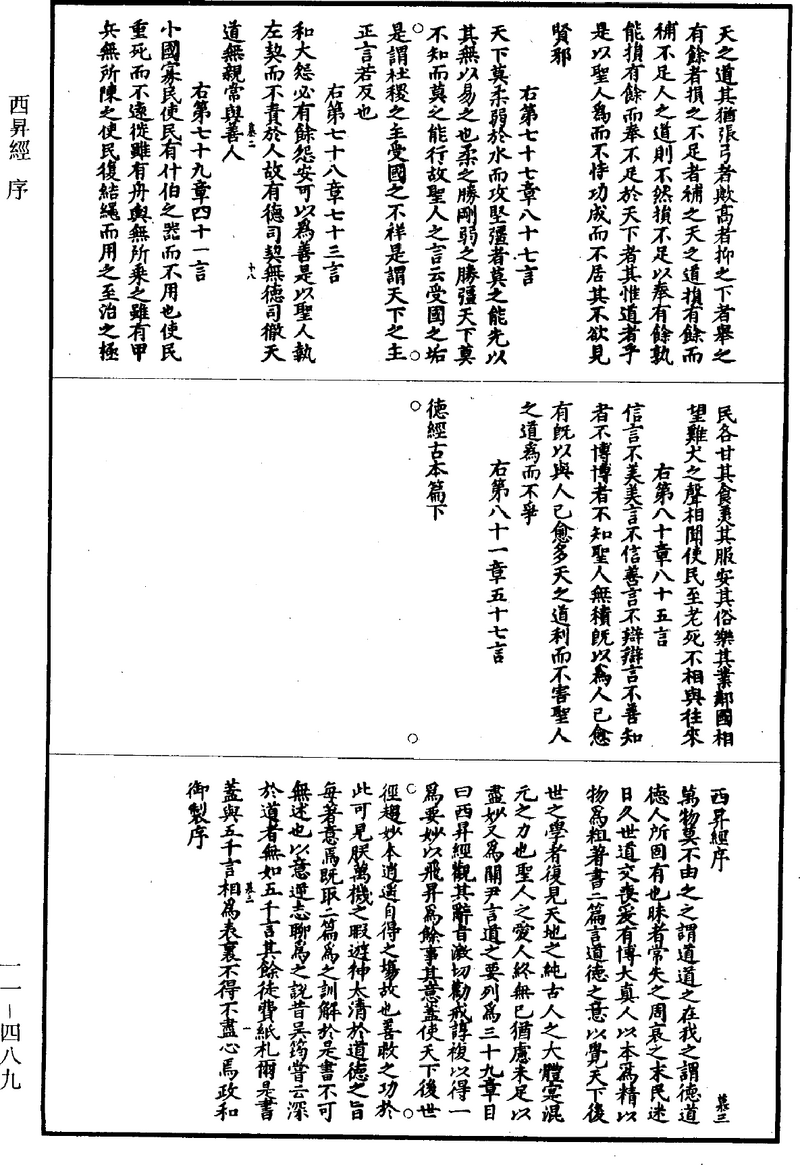 天之道其猶張弓者歟高者抑之下者舉之
有餘者損之不足者補之天之道損有餘而
補不足人之道則不然損不足以奉有餘孰
能損有餘而奉不足於天下者其惟道者乎
是以聖人為而不恃功成而不居其不欲見
賢邪
右第七十七章八十七言
天下莫柔弱於水而攻堅彊者莫之能先以
其無以易之也柔之勝剛弱之勝彊天下莫
不知而莫之能行故聖人之言云受國之垢
是謂社稷之主受國之不祥是謂天下之主
正言若反也
右第七十八章七十三言
和大怨必有餘怨安可以為善是以聖人執
左契而不責於人故有德司契無德司徹天
慕二 十八
道無親常與善人
右第七十九章四十一言
小國寡民使民有什伯之器而不用也使民
重死而不遠徙雖有舟輿無所乘之雖有甲
兵無所陳之使民復結繩而用之至治之極
民各甘其食美其服安其俗樂其業鄰國相
望雞犬之聲相聞使民至老死不相與往來
右第八十章八十五言
信言不美美言不信善言不辯辯言不善知
者不博博者不知聖人無積既以為人己愈
有既以與人己愈多天之道利而不害聖人
之道為而不爭
右第八十一章五十七言
德經古本篇下
西昇經序
慕三
萬物莫不由之之謂道道之在我之謂德道
德人所固有也昧者常失之周衰之末民迷
日久世道交喪爰有博大真人以本為精以
物為粗著書二篇言道德之意以覺天下後
世之學者復見天地之純古人之大體寔混
元之力也聖人之愛人終無已猶慮未足以
盡妙又為關尹言道之要列為三十九章目
曰西昇經觀其辭旨激切勸戒諄複以得一
為要妙以飛昇為餘事其意蓋使天下後世
徑趨妙本逍遙自得之場故也善救之功於
此可見朕萬機之暇遊神太清於道德之旨
每著意焉既取二篇為之訓解於是書不可
無述也以意逆志聊為之說昔吳筠嘗云深
於道者無如五千言其餘徒費紙札爾是書
慕三 一
蓋與五千言相為表裏不得不盡心焉政和
御製序
西昇經 序
一一－四八九